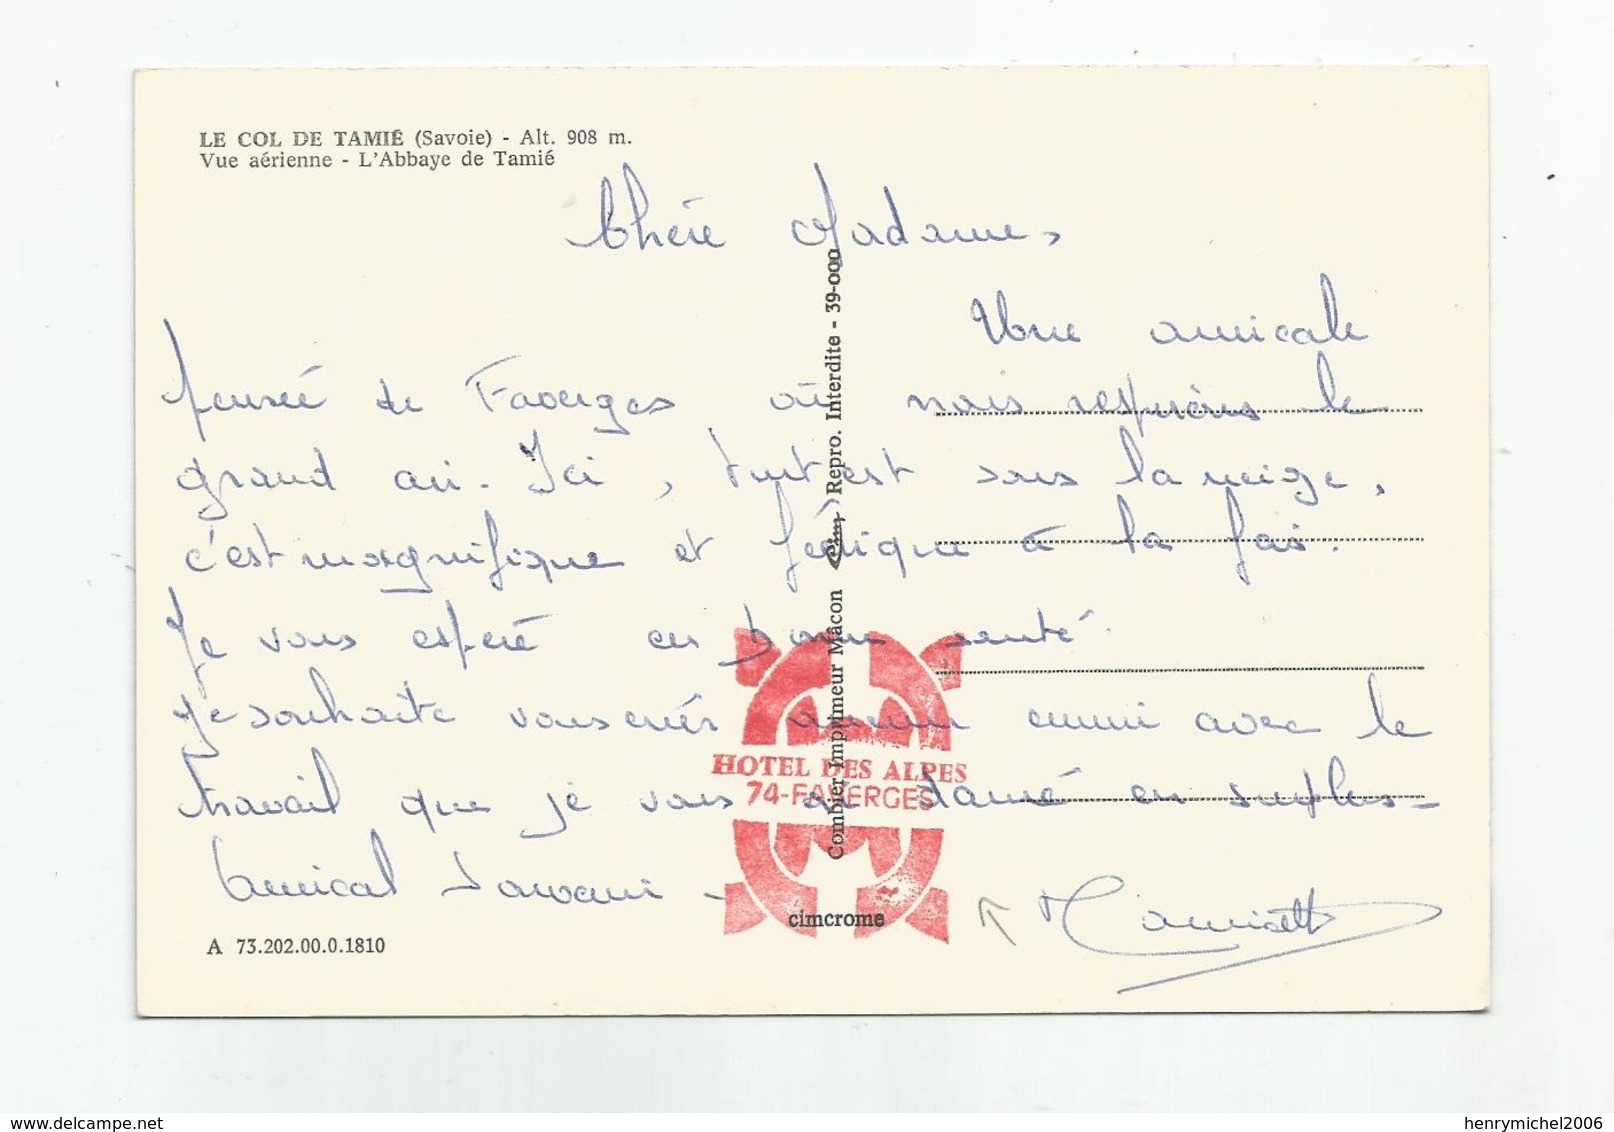 LE COL DE TAMIÉ (Savoie) - Alt. 908 m.
Vue aérienne - L'Abbaye de Tamié
Chère Madame,
Une amicale
pensée de Faverges où nous respirons le
grand air. Ici, tout est sous la neige,
c'est magnifique et féérique à la fois.
Je vous espère en bonne santé.
Je souhaite vous aucun ennui avec le
travail que je vous ai donné en surplus -
Amical
Combier Imprimeur Mâcon Cim Repro. Interdite - 39-000
HOTEL DES ALPES
74-FAVERGES
cimcrome
A 73.202.00.0.1810
delcampe.net
henrymichel2006